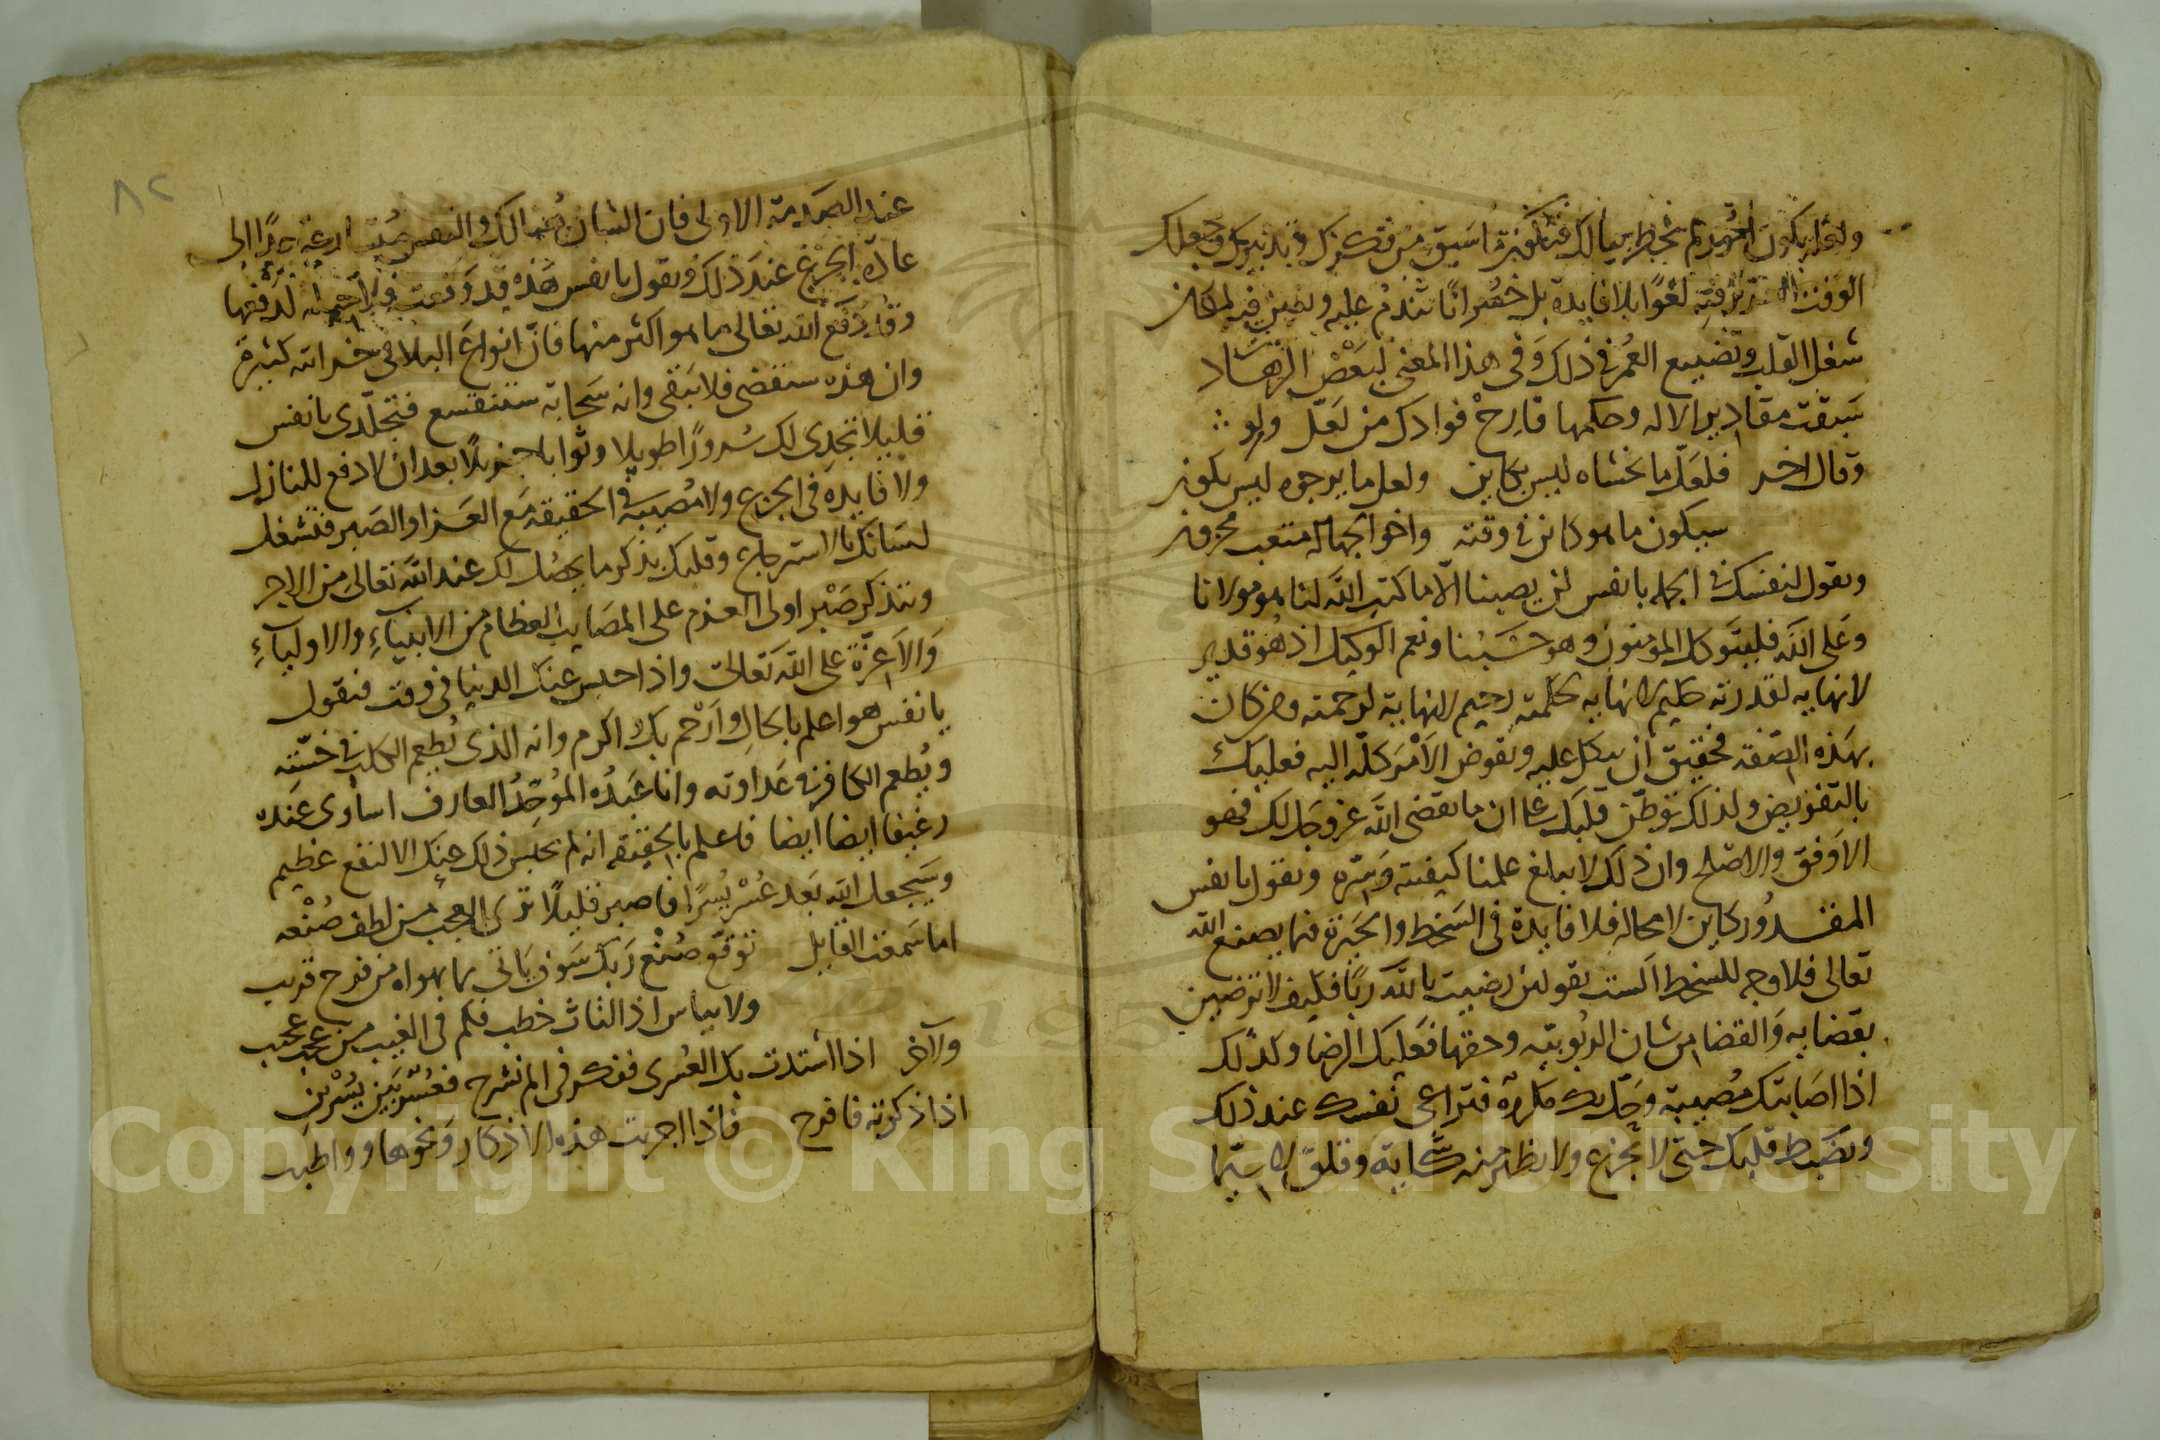 ولعل يكون امور لم يخطر ببالك فيكون ما سبق من فكرك وتدبيرك وجعلك
الوقت الشريف فيه لغوًا بلا فايدة بل خسرانًا تندم عليه وتصير فيه لمكان
شغل القلب وتضييع العمر في ذلك وفى هذا المعنى لبعض الزهاد
سبقت مقادير الاله وحكمها فارح فوادك من لعل ولو
وقال اخر فلعل ما تخشاه ليس بكاين ولعل ما يرجوه ليس يكون
سيكون ما هو كائن في وقته واخو الجهالة متعب محزون
وتقول لنفسك في الجملة يا نفس لن يصيبنا الا ما كتب الله لنا هو مولانا
وعلى الله فليتوكل المومنون وهو حسبنا ونعم الوكيل اذ هو قدير
لا نهاية لقدرته حكيم لا نهاية لحكمته رحيم لا نهاية لرحمته ومن كان
بهذه الصفة فحقيق ان يتكل عليه ويفوض الامر كله اليه فعليك
بالتفويض ولذلك توطن قلبك على ان ما يقضى الله عز وجل لك فهو
الاوفق والاصلح وان ذلك لا يبلغ علمنا كيفيته وسره وتقول يا نفس
المقدور كاين لا محالة فلا فايدة في السخط والخيرة فيما يصنع الله
تعالى فلا وجه للسخط الست تقولين رضيت بالله ربًا فكيف لا ترضين
بقضايه والقضا من شان الربوبية وحقها فعليك الرضا وكذلك
اذا اصابتك مصيبة وحل بك مكروه فتراعى نفسك عند ذلك
وتضبط قلبك حتى لا تجزع ولا يظهر منه شكاية وقلق لا سيما
٨٢
عند الصدمة الاولى فان الشان هنالك والنفس مسارعة جدًا الى
عادة الجزع عند ذلك وتقول يا نفس هذه قد وقعت فلا حيلة لدفعها
وقد دفع الله تعالى ما هو اكثر منها فان انواع البلا في خزانته كثيرة
وان هذه ستنقضى فلا تبقى وانه سحابة ستنقشع فتجلدى يا نفس
قليلا تجدى لك سرورًا طويلا وثوابا جزيلًا بعد ان لا دفع للنازل
ولا فايدة في الجزع ولا مصيبة في الحقيقة مع العزا والصبر فتشغل
لسانك بالاسترجاع وقلبك بذكر ما يحصل لك عند الله تعالى من الاجر
وتتذكر صبر اولى العزم على المصايب العظام من الانبياء والاولياء
والاعزة على الله تعالى واذا حبس عنك الدنيا في وقت فتقول
يا نفس هو اعلم بالحال وارحم بك اكرم وانه الذى يطعم الكلب في خسته
ويطعم الكافر في عداوته وانا عبده الموحد العارف اساوى عنده
رغيفا ايضا ايضا فاعلم بالحقيقة انه لم يحبس ذلك عنك الا لنفع عظيم
وسيجعل الله بعد عسر يسرًا فاصبر قليلًا ترى العجب من لطف صنعه
اما سمعت القايل توقع صنع ربك سوف ياتي بما تهواه من فرج قريب
ولا تياس اذا لناث خطب فكم في الغيب من عجب عجيب
ولآخر اذا اشتدت بك العسرى ففكر في الم نشرح فعسر بين يسرين
اذا ذكرته فافرح فاذا اجريت هذه الاذكار ونحوها وواظبت
Copyright © King Saud University